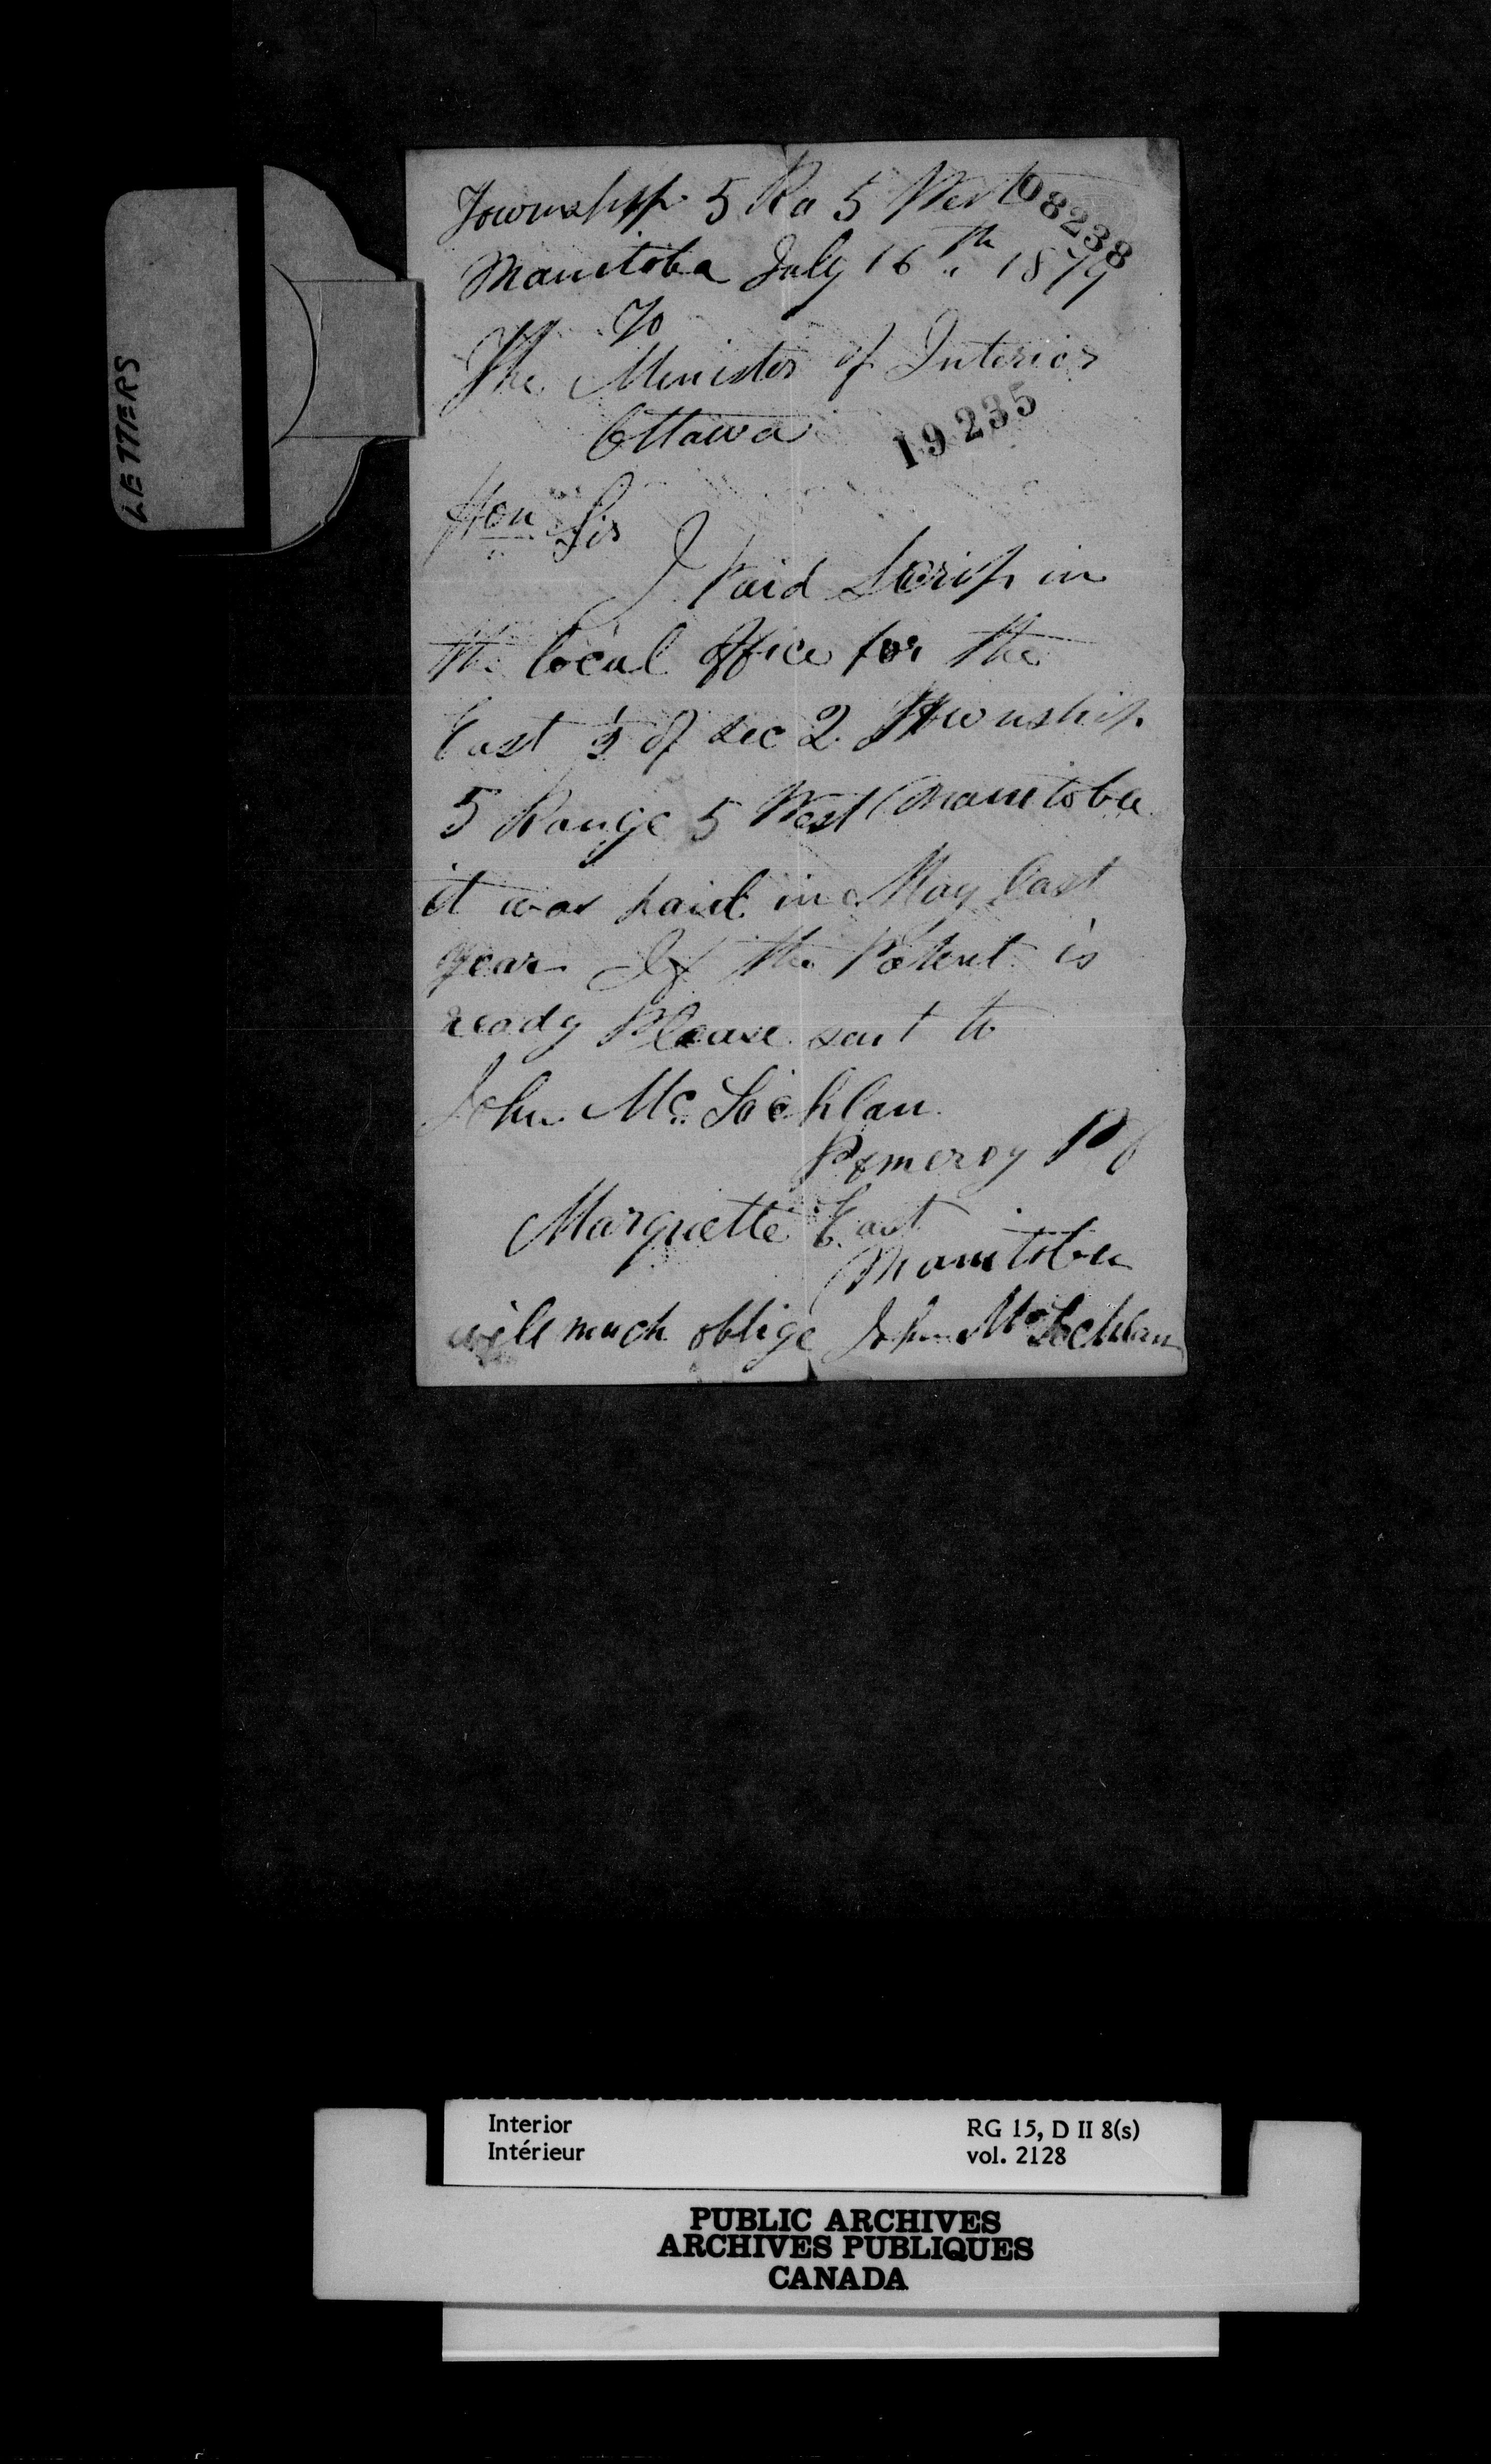 LETTERS
Township 5 Ra 5 West
98238
Manitoba July 16th 1879
To
The Minister of Interior
Ottawa
19235
Hon Sir
I Paid Scrip in
the local office for the
East ½ of sec 2 Township
5 Range 5 West Manitoba
it was paid in May last
year If the Patent is
ready Please sent to
John Mc Lochlan
Pomeroy PO
Marquette East
Manitoba
will much oblige John Mc Lochlan
Interior
Intérieur
RG 15, D II 8(s)
vol. 2128
PUBLIC ARCHIVES
ARCHIVES PUBLIQUES
CANADA